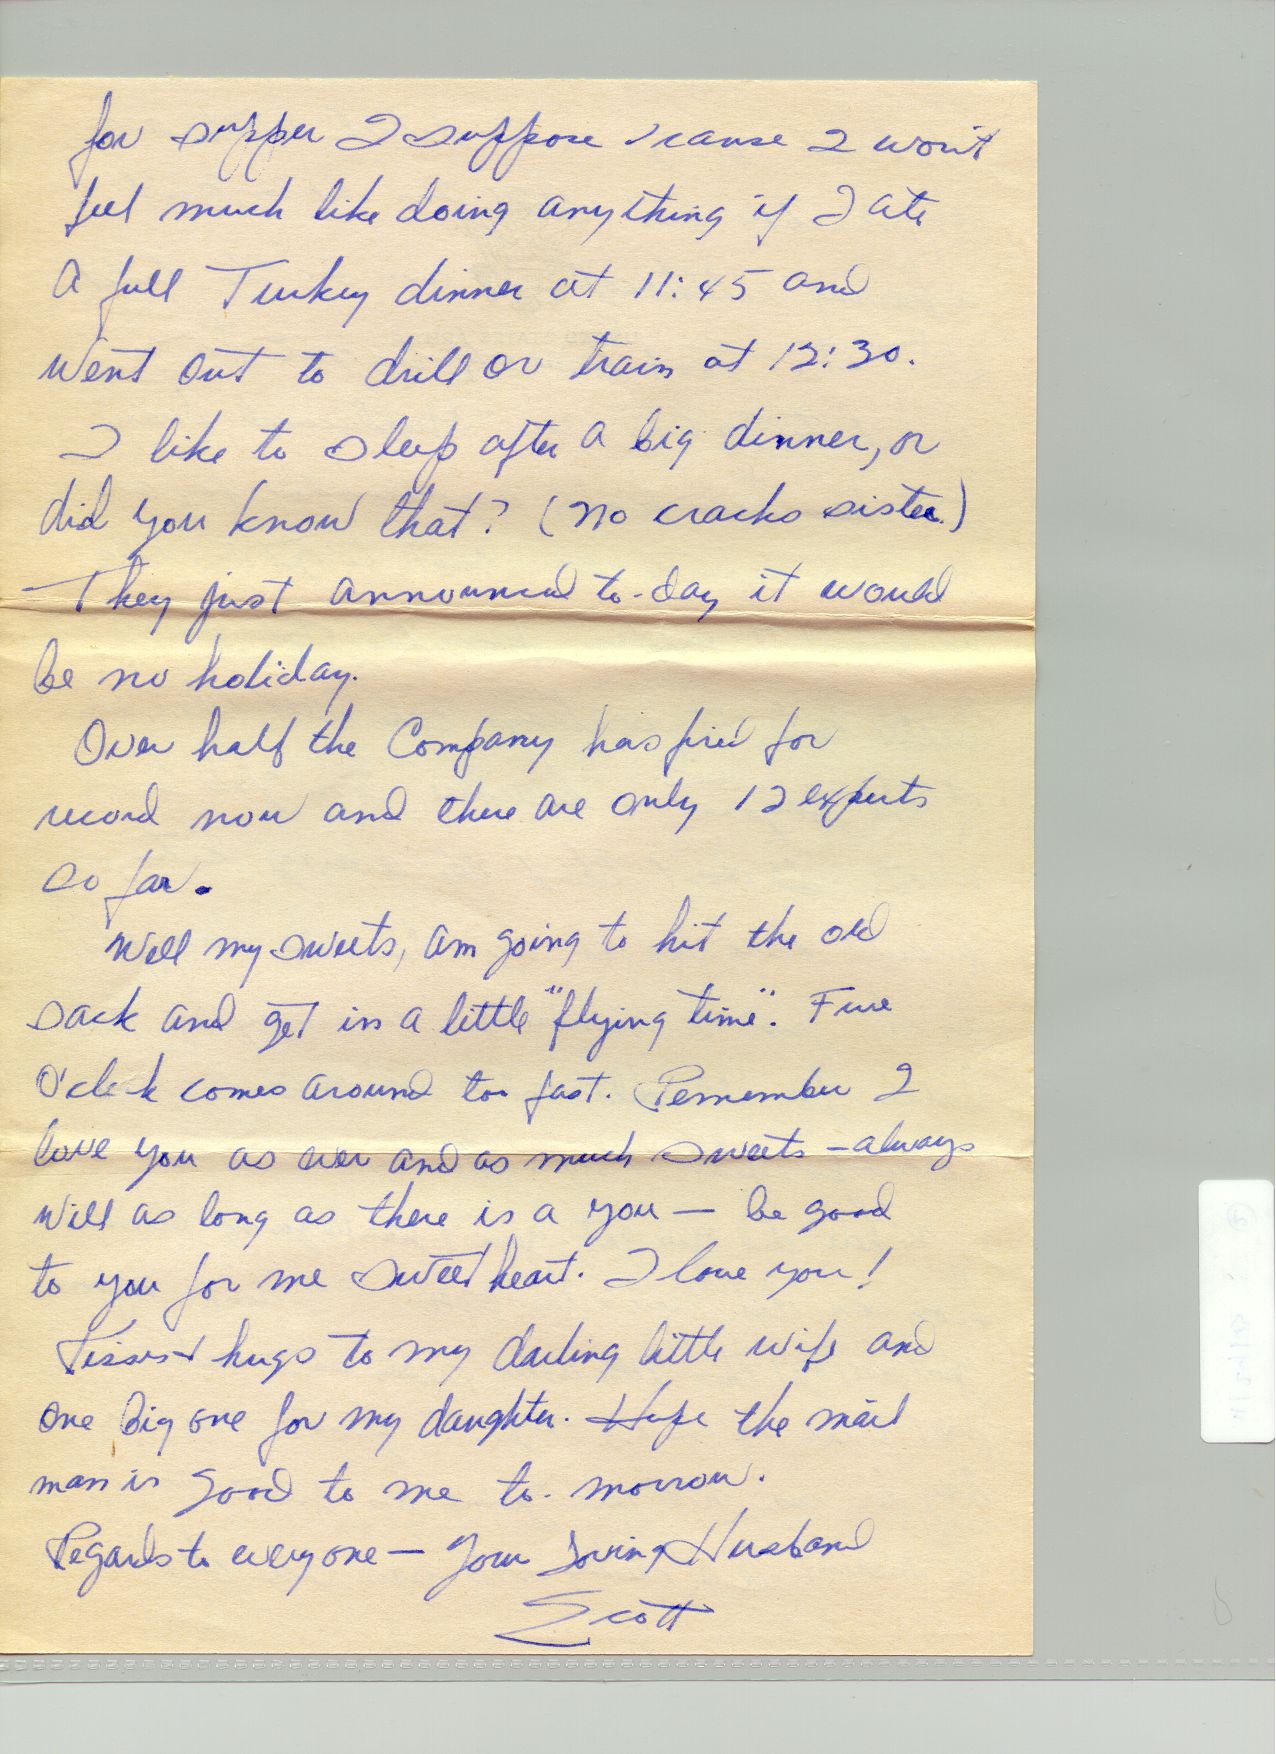 for supper I suppose 'cause I won't
feel much like doing anything if I ate
a full Turkey dinner at 11:45 and
went out to drill or train at 12:30.
I like to sleep after a big dinner, or
did you know that? (No cracks sister.)
They just announced to-day it would
be no holiday.
Over half the Company has fired for
record now and there are only 12 experts
so far.
Well my sweets, am going to hit the old
sack and get in a little "flying time". Five
O'clock comes around too fast. Remember I
love you as ever and as much sweets - always
will as long as there is a you - be good
to you for me sweetheart. I love you!
Kisses + hugs to my darling little wife and
one big one for my daughter. Hope the mail
man is good to me to-morrow.
Regards to everyone - Your Loving Husband
Scott